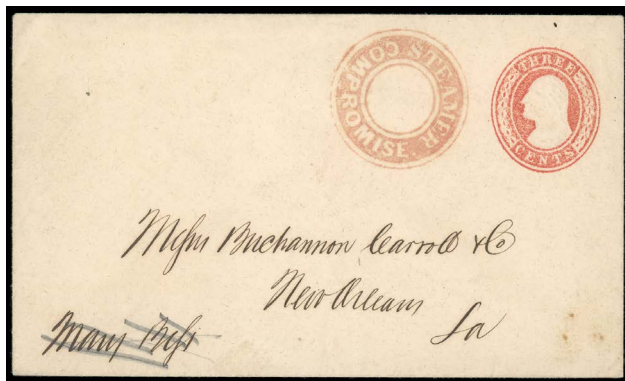 STEAMER COMPROMISE
THREE CENTS
Messrs Buchannon Carroll & Co
New Orleans
La